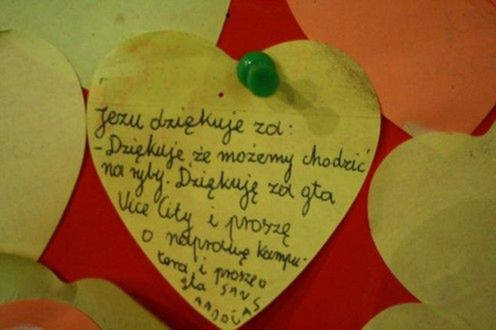 Jezu dziękuje za:
- Dziękuje że możemy chodzić
na ryby. Dziękuję za gta
Vice City i proszę
o naprawę kampu-
tera i proszę o
gta SANS
ANDÓŁAS